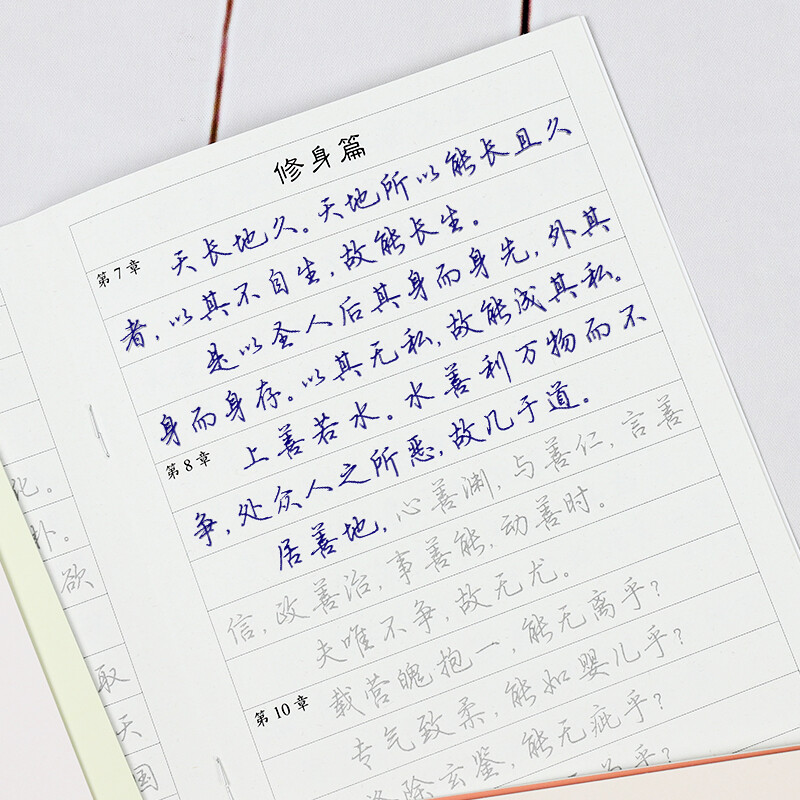 修身篇
第7章 天长地久。天地所以能长且久
者，以其不自生，故能长生。
是以圣人后其身而身先，外其
身而身存。以其无私，故能成其私。
第8章 上善若水。水善利万物而不
争，处众人之所恶，故几于道。
居善地，心善渊，与善仁，言善
信，政善治，事善能，动善时。
夫唯不争，故无尤。
第10章 载营魄抱一，能无离乎？
专气致柔，能如婴儿乎？
除玄鉴，能无疵乎？
乎？
化。
欲
取
天
国